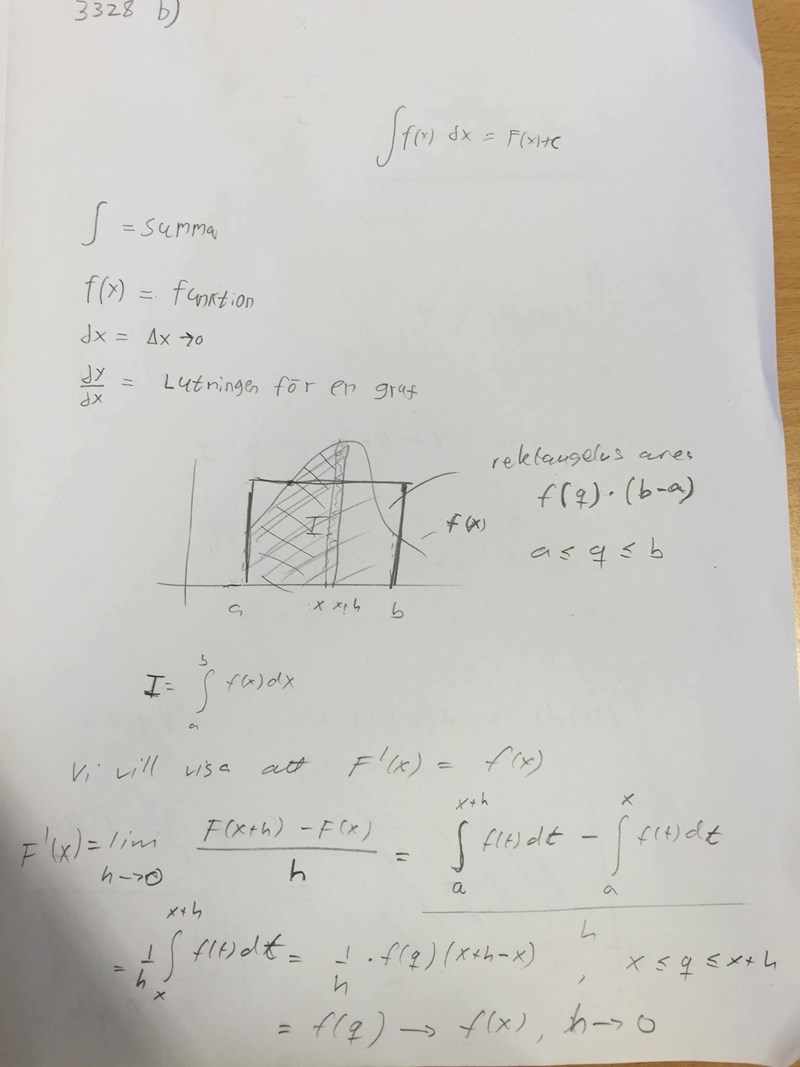 3328 b)
∫f(x) dx = F(x)+C
∫ = Summa
f(x) = funktion
dx = Δx→0
dy/dx = Lutningen för en graf
rektangelns area
f(q)·(b-a)
I
f(x)
a ≤ q ≤ b
a x x+h b
I = ∫_a^b f(x)dx
Vi vill visa att F'(x) = f(x)
F'(x) = lim_{h→0} (F(x+h) - F(x))/h = (∫_a^{x+h} f(t)dt - ∫_a^x f(t)dt)/h
= 1/h ∫_x^{x+h} f(t)dt = 1/h · f(q)(x+h-x) , x ≤ q ≤ x+h
= f(q) → f(x), h→0